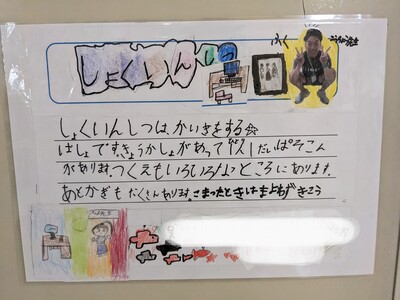 しょくいんしつ
しょくいんしつは、かいぎをする
ばしょです。きょうかしょがあって 1人1だいぱそこん
があります。つくえもいろいろなところにあります。
あとかぎもたくさんあります。こまったときは まよわず きこう